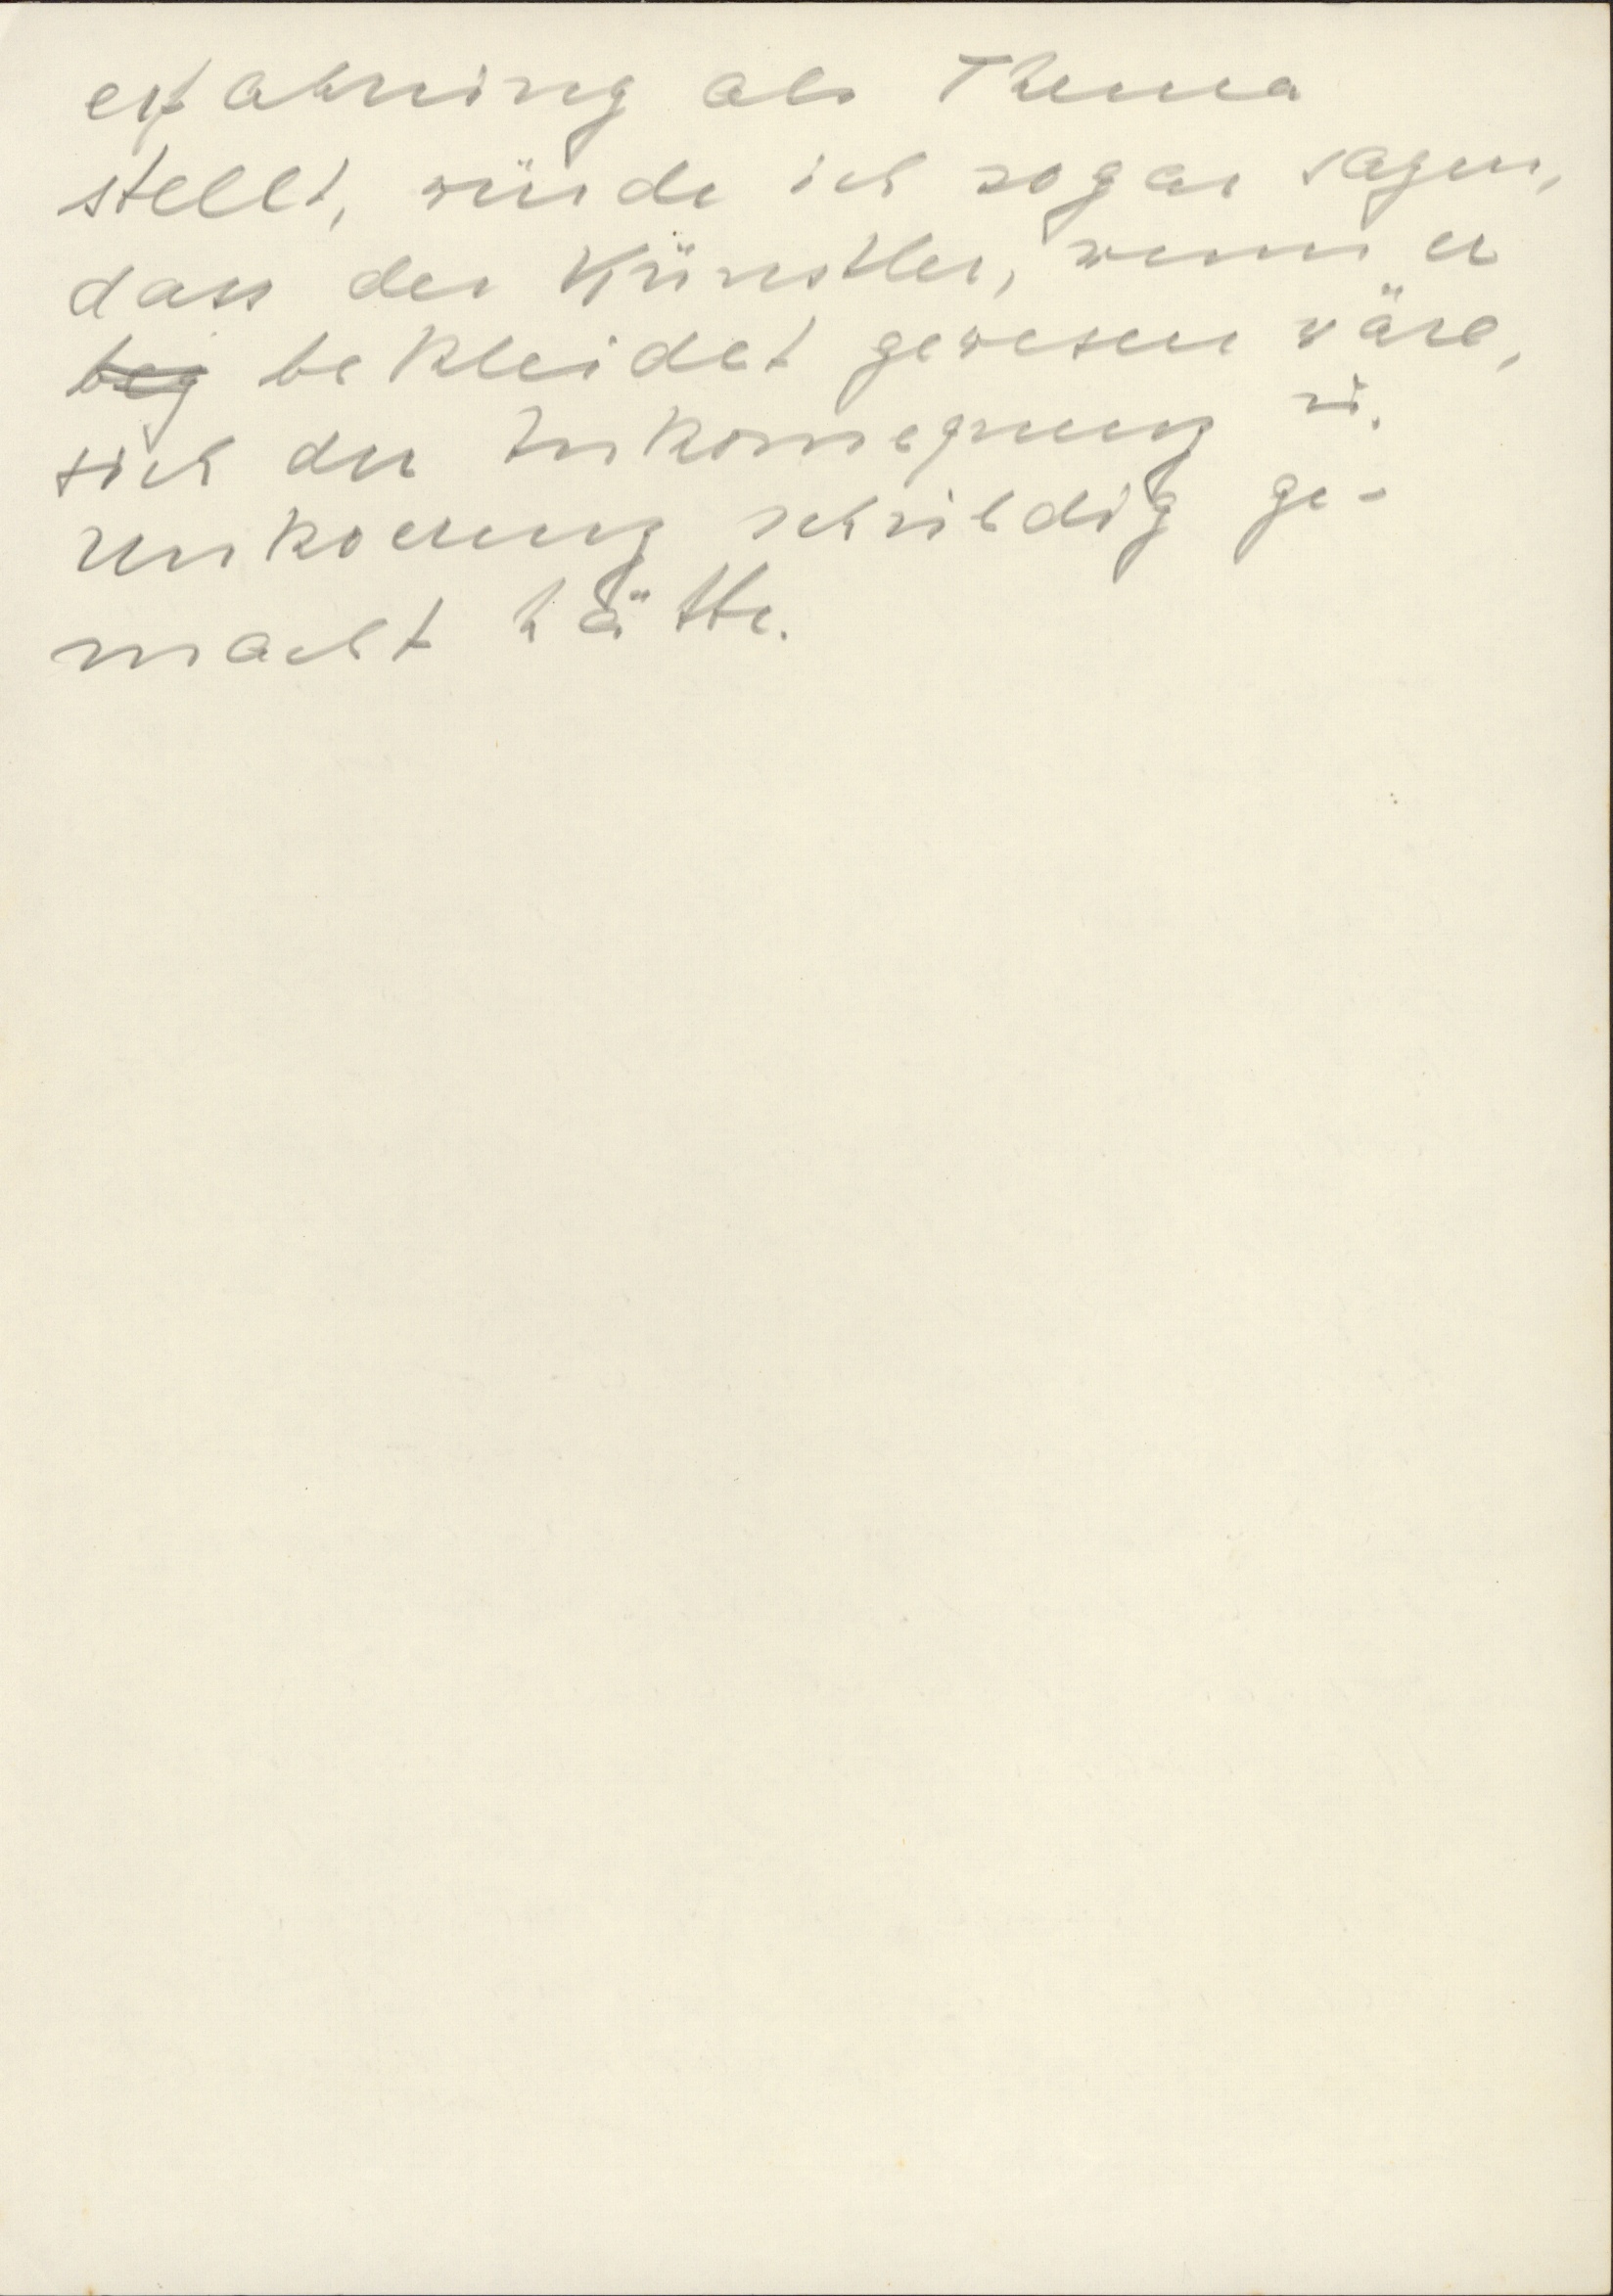 erfahrung als Thema
stellt, würde ich sogar sagen,
dass der Künstler, wenn er
beg bekleidet gewesen wäre,
sich der Inkonsequenz u.
Unkoerenz schuldig ge-
macht hätte.